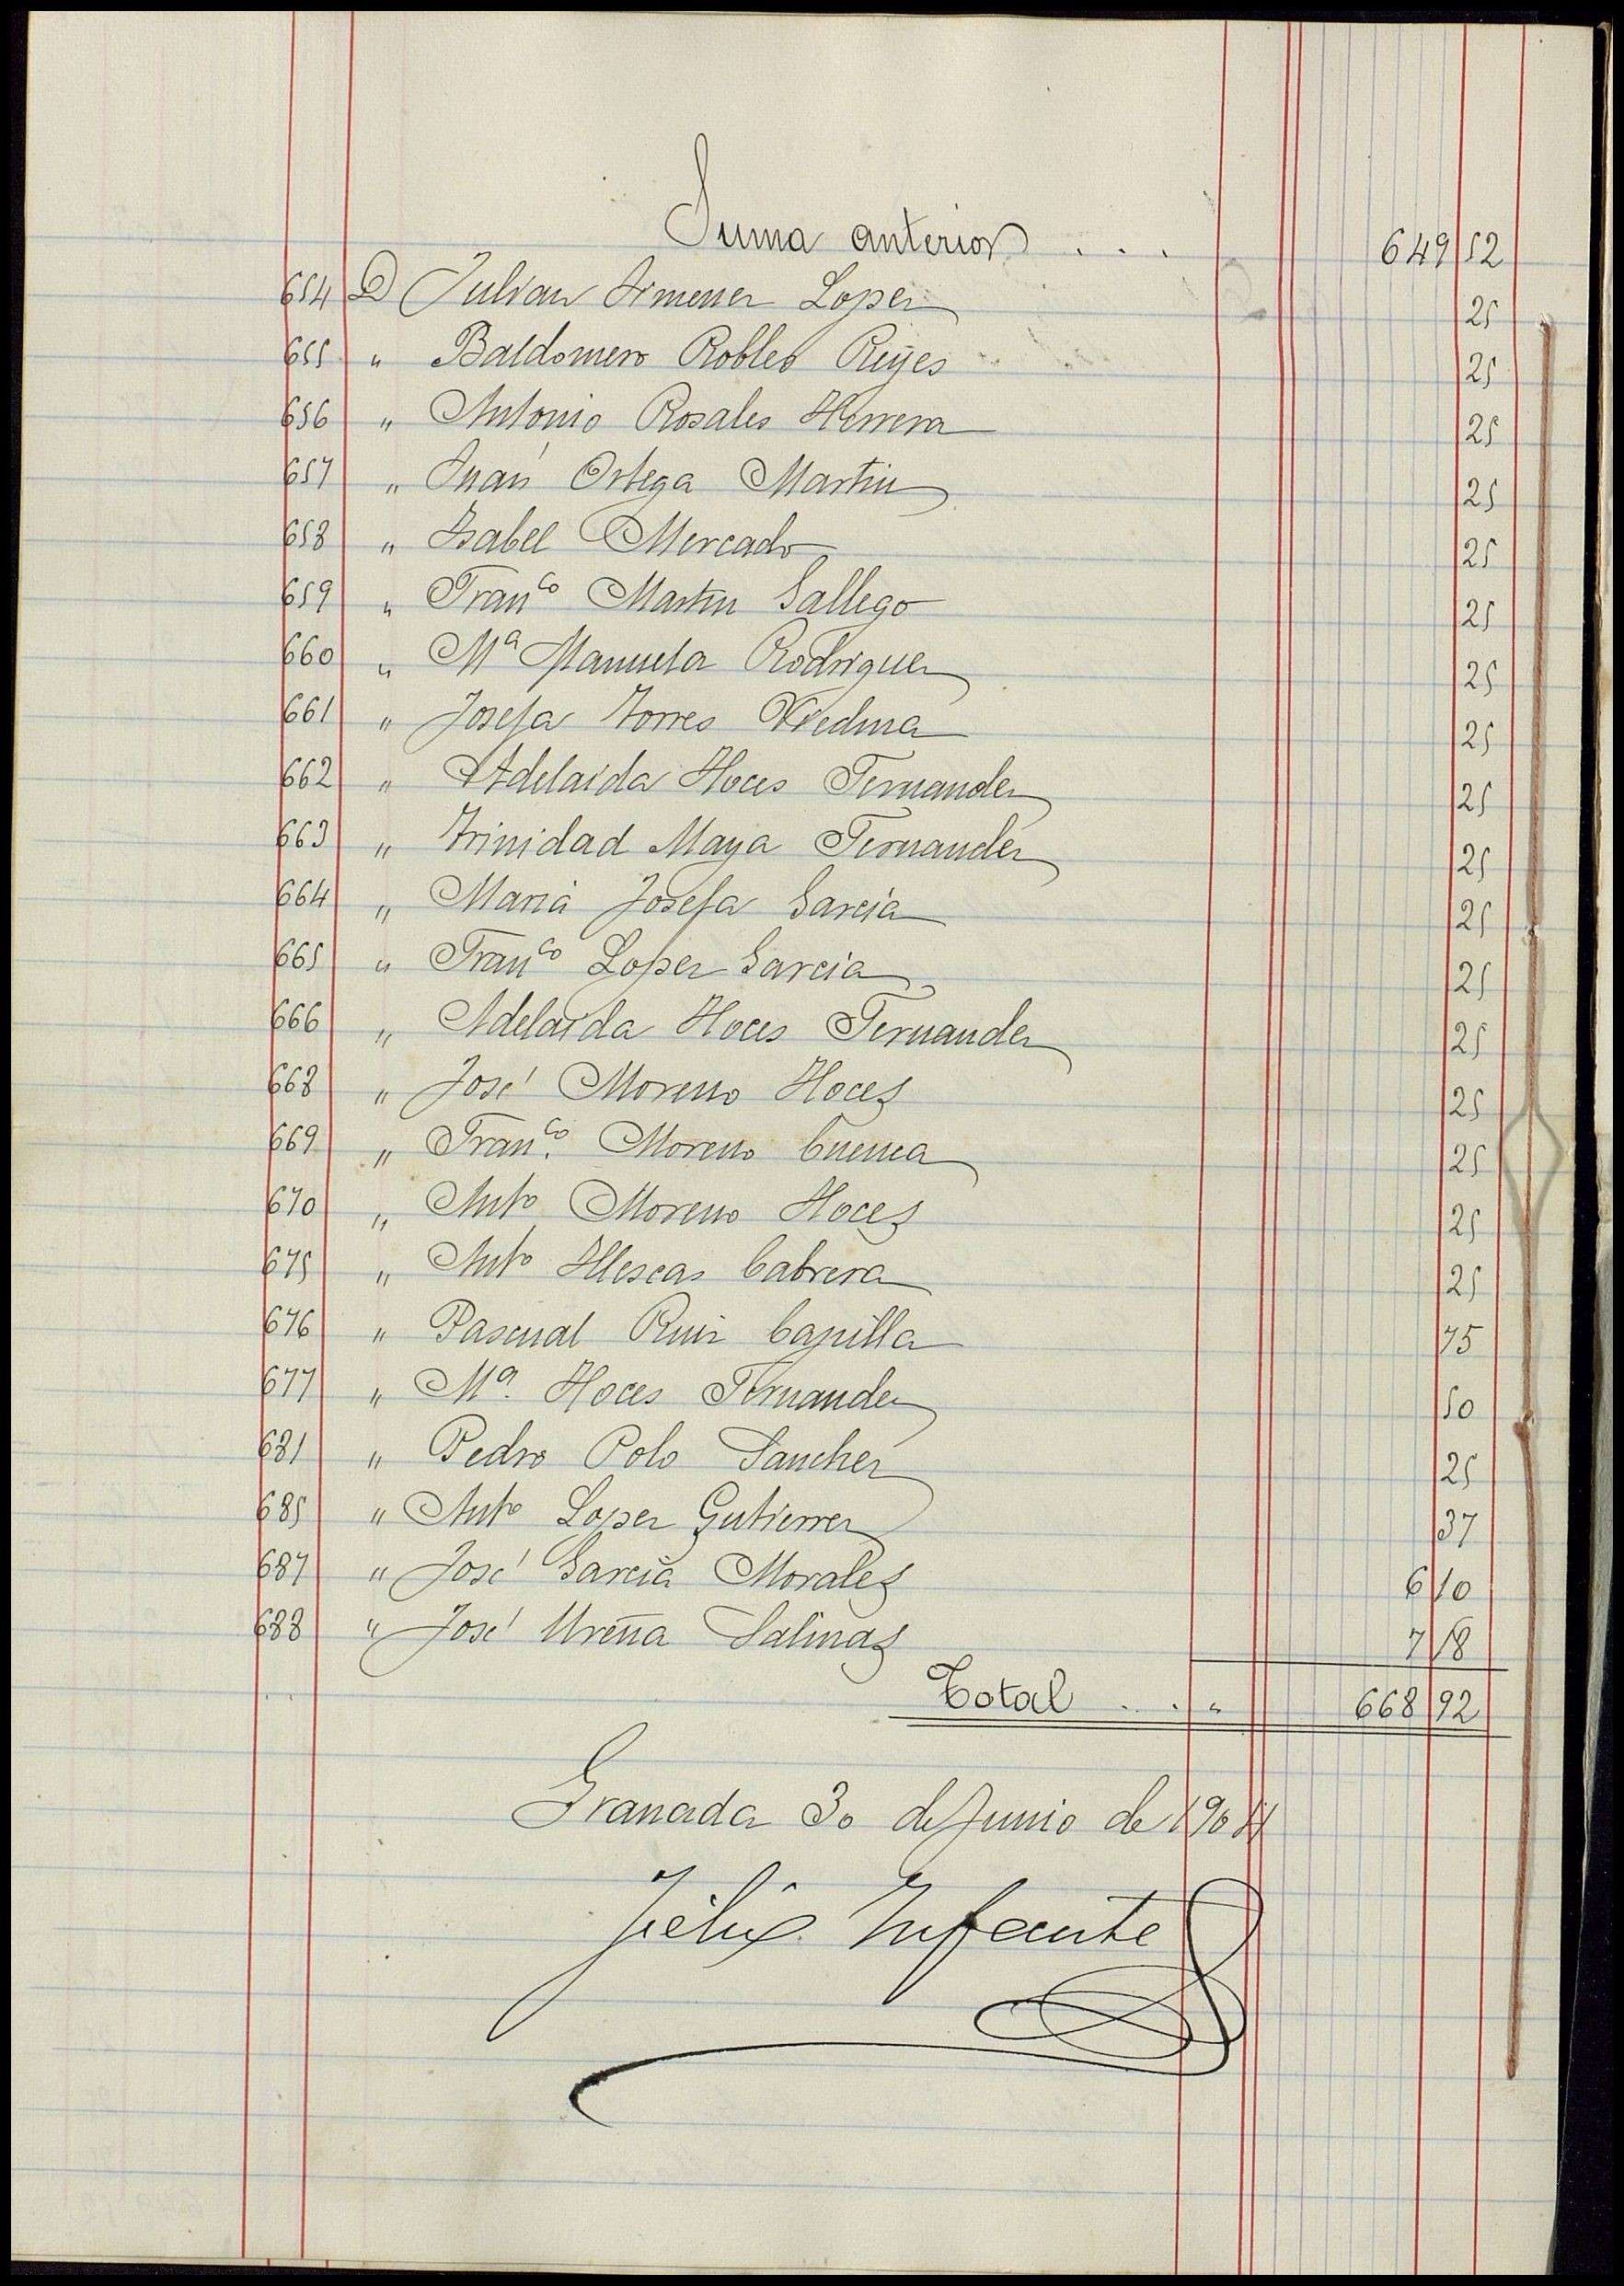 Suma anterior . . . 649 52
654 D Julian Jimenez Lopez 25
655 " Baldomero Robles Reyes 25
656 " Antonio Rosales Herrera 25
657 " Juan Ortega Martin 25
658 " Isabel Mercado 25
659 " Franco Martin Gallego 25
660 " Ma Manuela Rodriguez 25
661 " Josefa Torres Viedma 25
662 " Adelaida Hoces Fernandez 25
663 " Trinidad Maya Fernandez 25
664 " Maria Josefa Garcia 25
665 " Franco Lopez Garcia 25
666 " Adelaida Hoces Fernandez 25
668 " José Moreno Hoces 25
669 " Franco. Moreno Cuenca 25
670 " Anto Moreno Hoces 25
675 " Anto Illescas Cabrera 25
676 " Pascual Ruiz Capilla 75
677 " Ma. Hoces Fernandez 50
681 " Pedro Polo Sanchez 25
685 " Anto Lopez Gutierrez 37
687 " José Garcia Morales 6 10
688 " José Ureña Salinas 7 18
Total . . . " 668 92
Granada 30 de Junio de 1904
Félix Infante